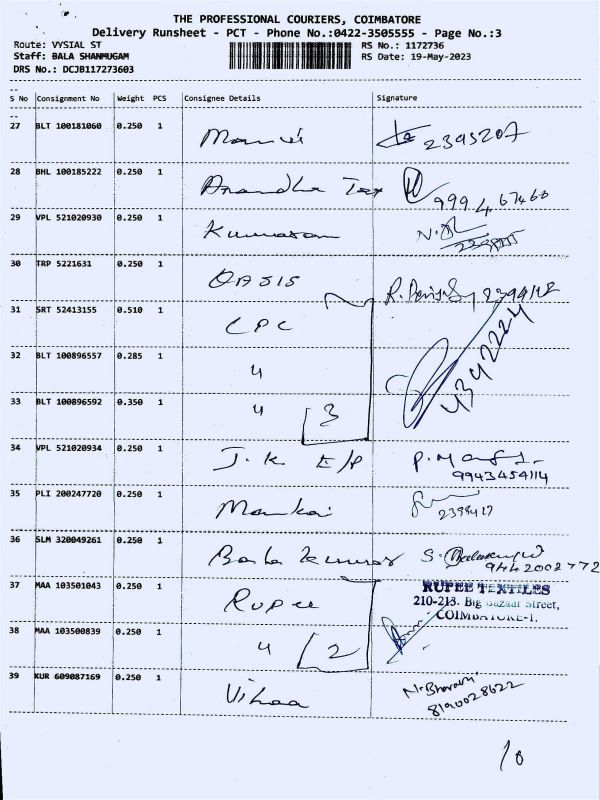 THE PROFESSIONAL COURIERS, COIMBATORE
Delivery Runsheet - PCT - Phone No.:0422-3505555 - Page No.:3
Route: VYSIAL ST RS No.: 1172736
Staff: BALA SHANMUGAM RS Date: 19-May-2023
DRS No.: DCJB117273603
S No Consignment No Weight PCS Consignee Details Signature
27 BLT 100181060 0.250 1 2395207
28 BHL 100185222 0.250 1 Anandha Tex 9994 67460
29 VPL 521020930 0.250 1 Kumaran
30 TRP 5221631 0.250 1 OASIS
31 SRT 52413155 0.510 1 CPC
32 BLT 100896557 0.285 1 4 4392224
33 BLT 100896592 0.350 1 4 3
34 VPL 521020934 0.250 1 J.K E/P
9943454114
35 PLI 200247720 0.250 1
36 SLM 320049261 0.250 1 Bala Kumar
9442002772
37 MAA 103501043 0.250 1 Rupee RUPEE TEXTILES
210-213. Big Bazaar Street,
COIMBATORE-1.
38 MAA 103500839 0.250 1 4 2
39 KUR 609087169 0.250 1 N. Bharani
8190028622
10